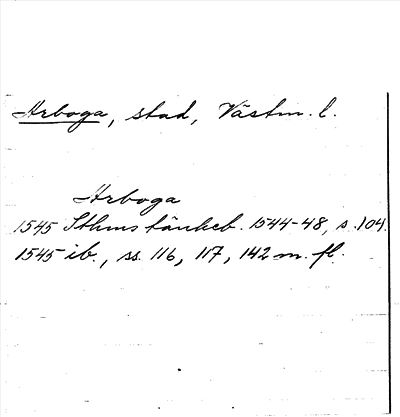 Arboga, stad, Västm. l.
Arboga
1545 Sthms tänkeb. 1544-48, s. 104.
1545 ib., ss. 116, 117, 142 m. fl.